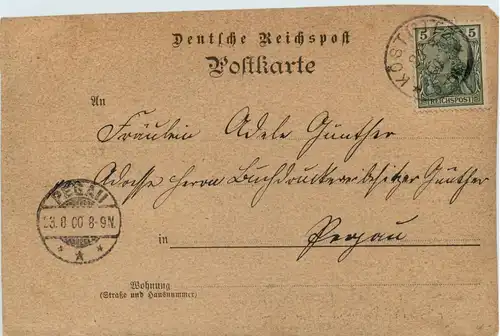 Deutsche Reichspost
Postkarte
KÖSTRITZ
5 5
REICHSPOST
An
Fräulein Adele Günther
Adresse Herrn Buchdruckereibesitzer Günther
PEGAU
23.8.00 8-9N.
in Pegau
Wohnung
(Straße und Hausnummer)